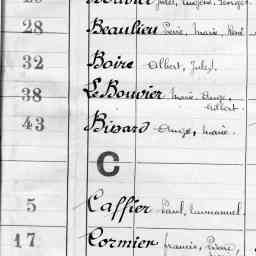 28 Beaulieu Pierre, Marie, René
32 Boire Albert, Jules.
38 Le Bouvier Marie, Ange, Albert.
43 Bivard Ange, Marie.
C
5 Caffier Paul, Emmanuel.
17 Cormier Francis, Pierre,